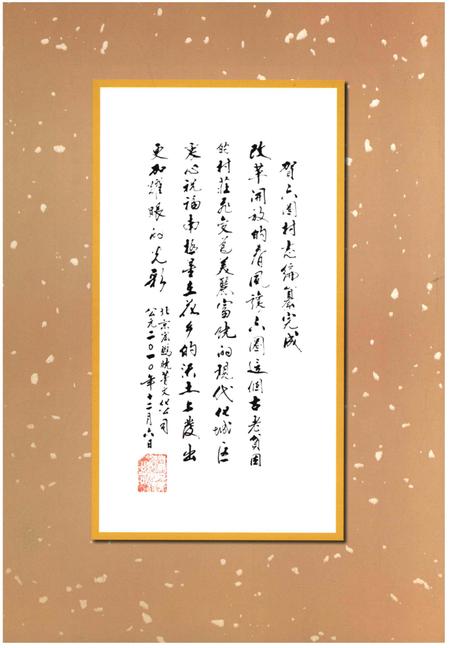 贺六圈村志编纂完成
改革开放的春风让六圈这个古老贫困
的村庄飞变为美丽富饶的现代化城区
衷心祝福南极星在花乡的沃土上发出
更加耀眼的光彩
北京
文化公司
公元二〇一〇年十二月六日